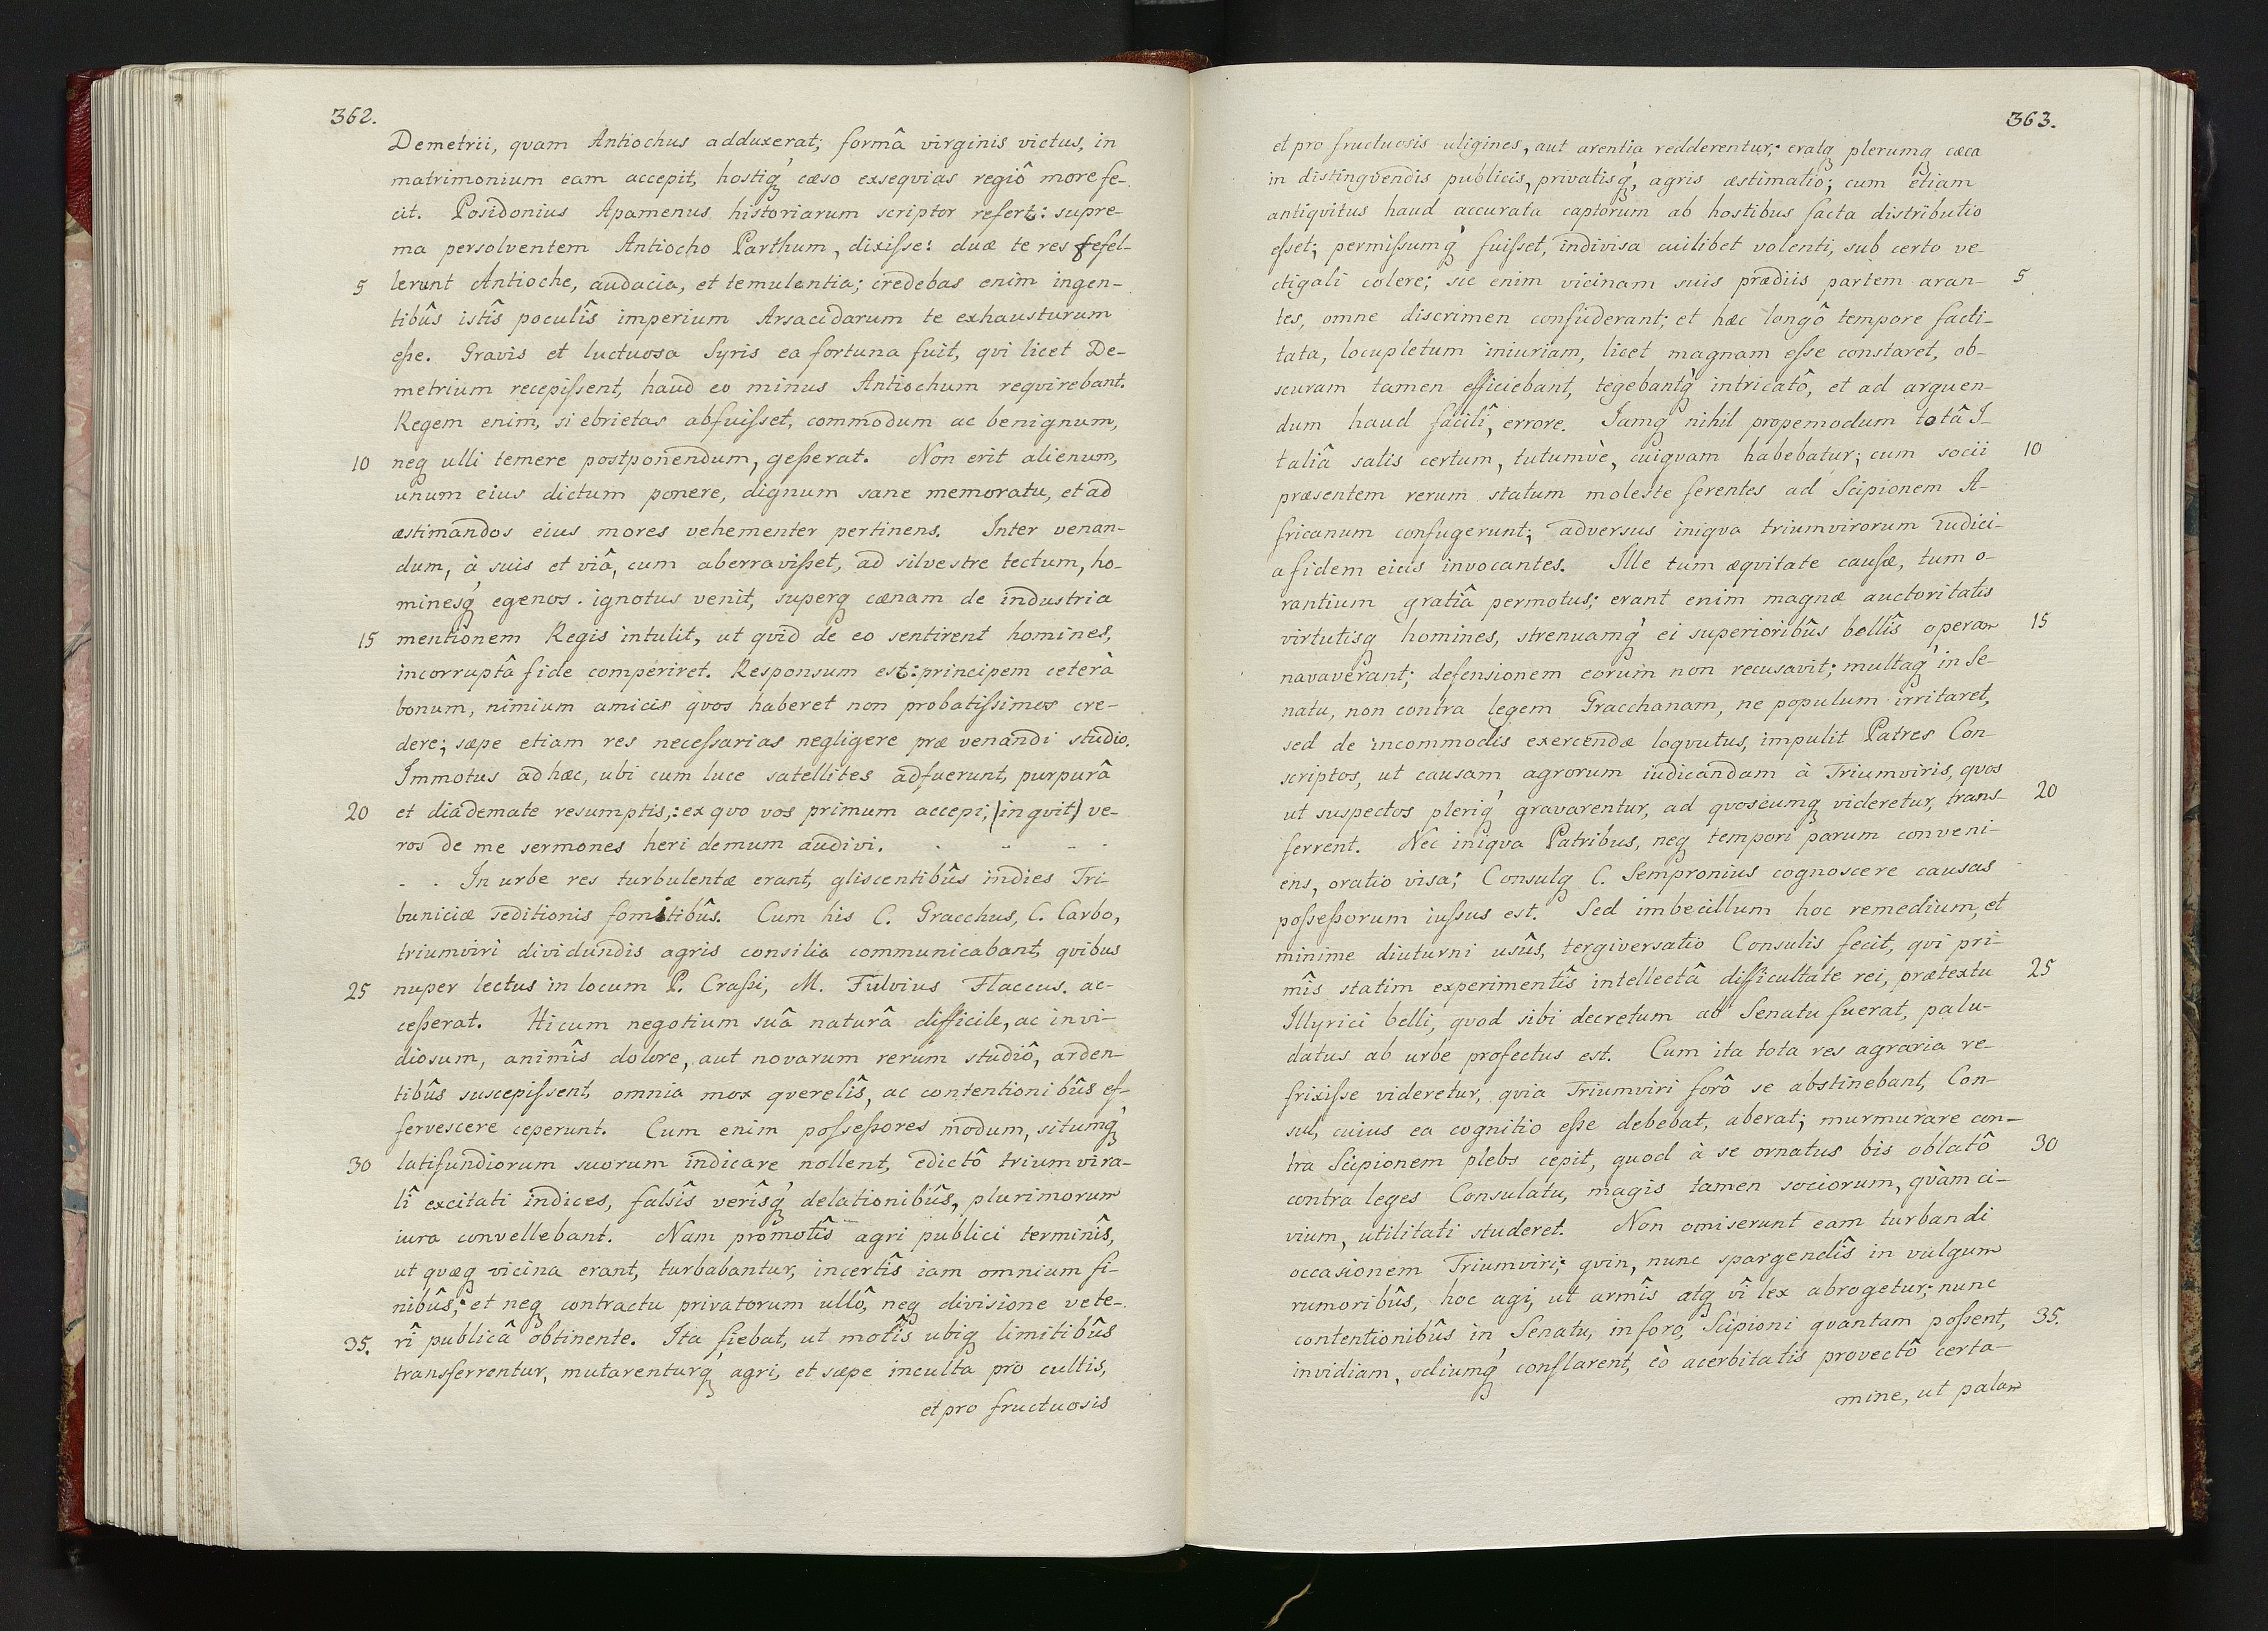 362.
Demetrii, quam Antiochus adduxerat; formâ virginis victus, in
matrimonium eam accepit, hostiq́ cæso exseqvias regiô more fe-
cit. Posidonius Apamenus historiarum scriptor refert: supre-
ma persolventem Antiocho Parthum, dixisse: duæ te res fefel-
5 lerunt Antioche, audacia, et temulentia; credebas enim ingen-
tibûs istîs poculîs imperium Arsacidarum te exhausturum
esse. Gravis et luctuosa Syris ea fortuna fuit, qvi licet De-
metrium recepissent, haud eo minus Antiochum reqvirebant.
Regem enim, si ebrietas abfuisset, commodum ac benignum,
10 neq ulli temere postponendum, gesserat. Non erit alienum,
unum eius dictum ponere, dignum sane memoratu, et ad
æstimandos eius mores vehementer pertinens. Inter venan-
dum, à suis et viâ, cum aberravisset, ad silvestre tectum, ho-
minesq́ egenos ignotus venit, superq cænam de industria
15 mentionem Regis intulit, ut qvid de eo sentirent homines,
incorruptâ fide comperiret. Responsum est: principem ceterà
bonum, nimium amicis qvos haberet non probatissimos cre-
dere; sæpe etiam res necessarias negligere præ venandi studio.
Immotus ad hæc, ubi cum luce satellites adfuerunt, purpurâ
20 et diademate resumptis,: ex quo vos primum accepi, (inqvit) ve-
ros de me sermones heri demum audivi. . - - .
- . In urbe res turbulentæ erant, gliscentibûs indies Tri
buniciæ seditionis fomitibûs. Cum his C. Gracchus, C. Carbo,
triumviri dividundis agris consilia communicabant, qvibus
25 nuper lectus in locum P. Crassi, M. Fulvius Flaccus. ac-
cesserat. Hi cum negotium suâ naturâ difficile, ac invi-
diosum, animîs dolore, aut novarum rerum studiô, arden-
tibûs suscepissent, omnia mox qverelîs, ac contentionibûs ef-
fervescere ceperunt. Cum enim possessores modum, situmq́
30 latifundiorum suorum indicare nollent, edictô triumvira-
lî excitati indices, falsîs verîsq́ delationibûs, plurimorum
iura convellebant. Nam promotîs agri publici terminîs,
ut qvæq vicina erant, turbabantur, incertîs iam omnium fi-
nibûs; et neq contractu privatorum ullô, neq divisione vete-
35. rî publicâ obtinente. Ita fiebat, ut motîs ubiq limitibûs
transferrentur, mutarenturq́ agri, et sæpe inculta pro cultis,
et pro fructuosis
363.
et pro fructuosis uligines, aut arentia redderentur; eratq plerumq cæca
in distingvendis publicis, privatisq́, agris æstimatio; cum etiam
antiqvitus haud accurata captorum ab hostibus facta distributio
esset; permissumq́ fuisset, indivisa cuilibet volenti, sub certo ve-
ctigali colere; sic enim vicinam suis prædiis partem aran- 5
tes, omne discrimen confuderant; et hæc longô tempore facti-
tata, locupletum iniuriam, licet magnam esse constaret, ob-
scuram tamen efficiebant, tegebantq́ intricatô, et ad arguen-
dum haud facilî, errore. Iamq nihil propemodum totâ I-
taliâ satis certum, tutumvè, cuiqvam habebatur; cum socii 10
præsentem rerum statum moleste ferentes ad Scipionem A-
fricanum confugerunt; adversus iniqva triumvirorum iudici-
a fidem eius invocantes. Ille tum æqvitate causæ, tum o-
rantium gratiâ permotus; erant enim magnæ auctoritatis
virtutisq homines, strenuamq́ ei superioribûs bellîs operam 15
navaverant; defensionem eorum non recusavit; multaq́ in Se-
natu, non contra legem Gracchanam, ne populum irritaret,
sed de incommodis exercendæ loqvutus, impulit Patres Con-
scriptos, ut causam agrorum iudicandam à Triumviris, qvos
ut suspectos pleriq́ gravarentur, ad qvoscumq videretur, trans- 20
ferrent. Nec iniqva Patribus, neq tempori parum conveni-
ens, oratio visa; Consulq C. Sempronius cognoscere causas
possessorum iussus est. Sed imbecillum hoc remedium, et
minime diuturni usûs, tergiversatio Consulis fecit, qvi pri-
mîs statim experimentîs intellectâ difficultate rei, prætextu 25
Illyrici belli, quod sibi decretum ab Senatu fuerat, palu-
datus ab urbe profectus est. Cum ita tota res agraria re-
frixisse videretur, qvia Triumviri forô se abstinebant, Con-
sul, cuius ea cognitio esse debebat, aberat; murmurare con-
tra Scipionem plebs cepit, quod à se ornatus bis oblatô 30
contra leges Consulatu, magis tamen sociorum, qvàm ci-
vium, utilitati studeret. Non omiserunt eam turbandi
occasionem Triumviri; qvin, nunc spargendîs in vulgum
rumoribûs, hoc agi, ut armîs atq vî lex abrogetur; nunc
contentionibûs in Senatu, in foro, Scipioni qvantam possent, 35.
invidiam, odiumq́ conflarent, eò acerbitatis provectô certa-
mine, ut palam